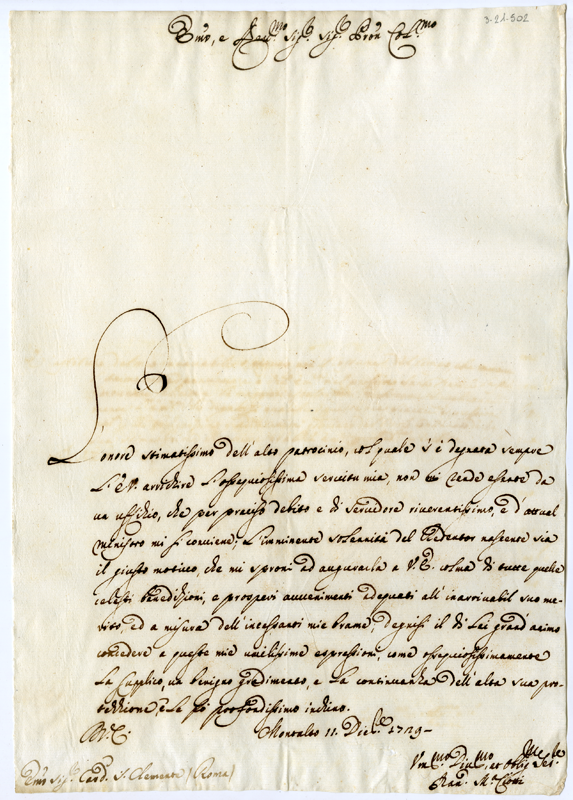 3-21-502
Em̃o, e Reu.mo Sig.r Sig.r Pron Col.mo
L'onore stimatissimo dell'alto patrocinio, col quale s'è degnata sempre
L'E.V. arrichire l'ossequiosissima seruitu mia, non mi rende esente da
un uffizio, che per preciso debito e di seruidore riuerentissimo, e d'attual
Ministro mi si conuiene; L'imminente solennità del Redentor nascente sia
il giusto motiuo, che mi sproni ad augurarla a V.E. colma di tutte quelle
celesti benedizioni, e prosperi auuenimenti adequati all'inarriuabil suo me-
rito, ed a misura dell'incessanti mie brame; degnisi il di Lei grand'animo
concedere a queste mie umilissime espressioni, come ossequiosissimamente
La supplico, un benigno gradimento, e La continuanza dell'alta sua pro-
tezzione, e Le fò profondissimo inchino.
Montalto 11. Dic.bre 1729-
Um.mo Diu.mo, et Oblig.mo Ser.e
Em̃o Sig.r Card. S. Clemente (Roma)